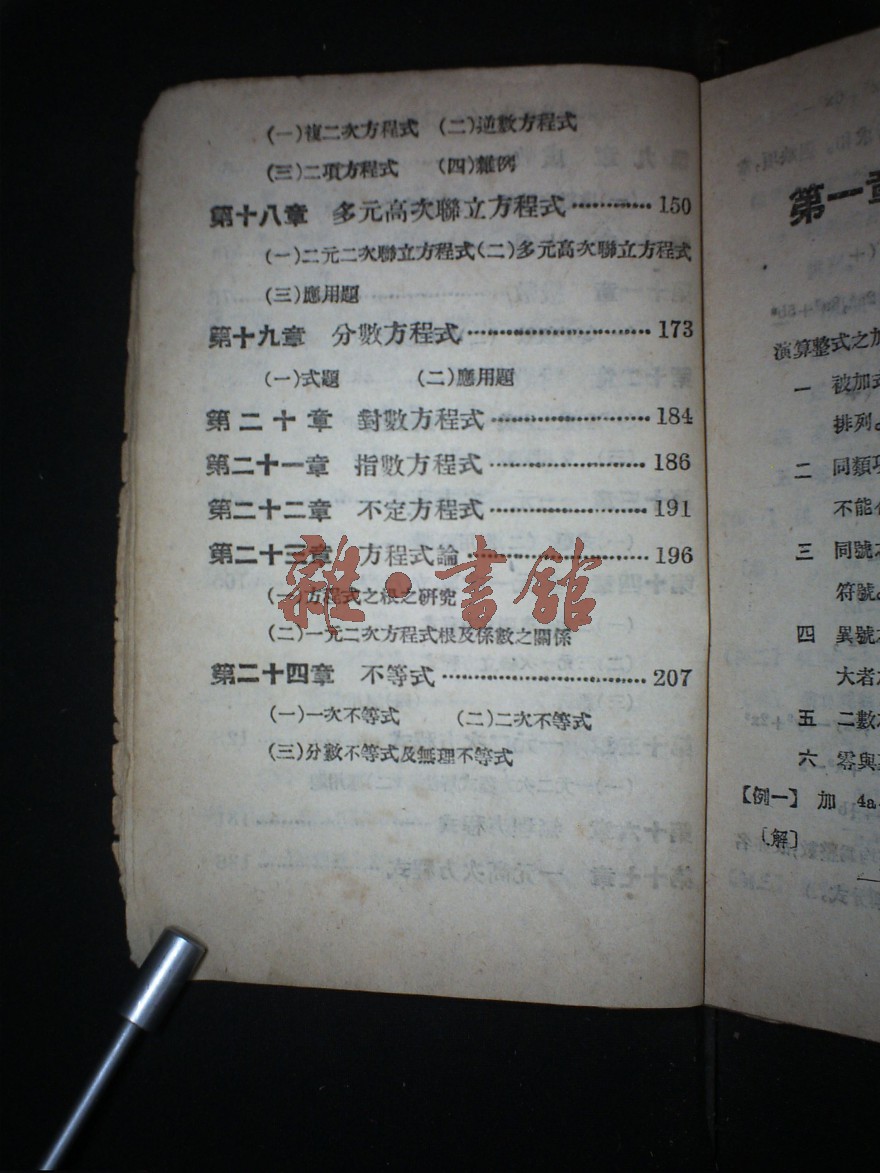 (一)複二次方程式 (二)逆數方程式
(三)二項方程式 (四)雜例
第十八章 多元高次聯立方程式············150
(一)二元二次聯立方程式(二)多元高次聯立方程式
(三)應用題
第十九章 分數方程式···························173
(一)式題 (二)應用題
第二十章 對數方程式························184
第二十一章 指數方程式························186
第二十二章 不定方程式························191
第二十三章 方程式論···························196
(一)方程式之根之研究
(二)一元二次方程式根及係數之關係
第二十四章 不等式······························207
(一)一次不等式 (二)二次不等式
(三)分數不等式及無理不等式
雜·書館
第一章
演算整式之加
一 被加式
排列。
二 同類項
不能
三 同號
符號。
四 異號
大者
五 二數
六 零與
【例一】 加 4a
〔解〕